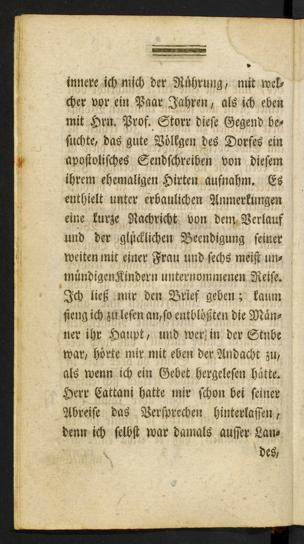 innere ich mich der Rührung, mit wel-
cher vor ein Paar Jahren, als ich eben
mit Hrn. Prof. Storr diese Gegend be-
suchte, das gute Völkgen des Dorfes ein
apostolisches Sendschreiben von diesem
ihrem ehemaligen Hirten aufnahm. Es
enthielt unter erbaulichen Anmerkungen
eine kurze Nachricht von dem Verlauf
und der glücklichen Beendigung seiner
weiten mit einer Frau und sechs meist un-
mündigen Kindern unternommenen Reise.
Ich ließ mir den Brief geben; kaum
fieng ich zu lesen an, so entblößten die Män-
ner ihr Haupt, und wer in der Stube
war, hörte mir mit eben der Andacht zu,
als wenn ich ein Gebet hergelesen hätte.
Herr Cattani hatte mir schon bei seiner
Abreise das Versprechen hinterlassen,
denn ich selbst war damals ausser Lan-
des,